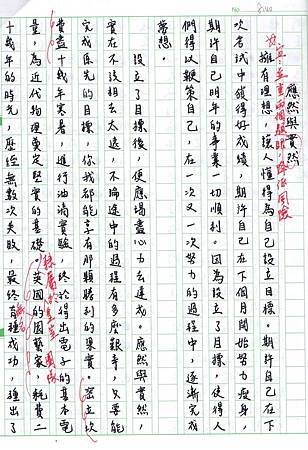 No. 8140
應然與實然
擁有理想，讓人懂得為自己設立目標。期許自己在下
次考試中獲得好成績，期許自己在下個月開始努力瘦身，
期許自己明年的事業一切順利。因為設立了目標，使得人
們得以鞭策自己，在一次又一次努力的過程中，逐漸完成
夢想。
設立了目標後，便應竭盡心力去達成。應然與實然，
實在不該相去太遠，不論途中的過程有多麼艱辛，只要能
完成原先的目標，你我都能享有那顆勝利的果實。密立坎
費盡十幾年寒暑，進行油滴實驗，終於得出電子的基本電
量，為近代物理奠定堅實的基礎。英國的園藝家，耗費二
十幾年的時光，歷經無數次失敗，最終育種成功，種出了